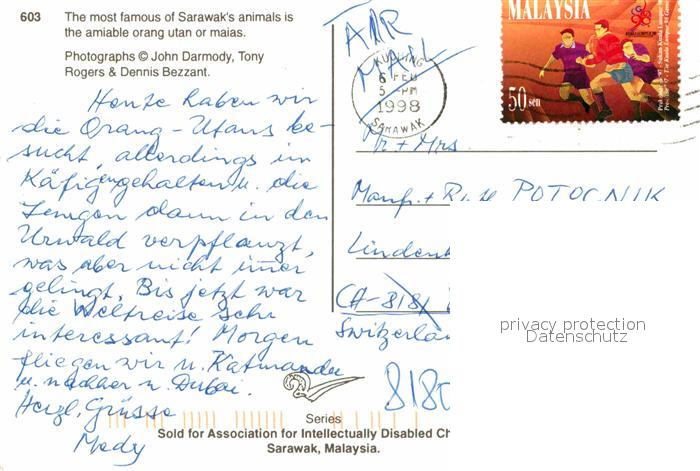 603 The most famous of Sarawak's animals is
the amiable orang utan or maias.
Photographs © John Darmody, Tony
Rogers & Dennis Bezzant.
Heute haben wir
die Orang-Utans be-
sucht, allerdings in
Käfigen gehalten u. die
Jungen dann in den
Urwald verpflanzt,
was aber nicht immer
gelingt. Bis jetzt war
die Weltreise sehr
interessant! Morgen
fliegen wir n. Katmandu
u. nachher n. Dubai.
Herzl. Grüsse
Mady
AIR
MAIL
KUCHING
6 FEB
5 PM
1998
SARAWAK
MALAYSIA
50 sen
Mr + Mrs
POTOCNIK
CH-8181
Switzerla
8180
privacy protection
Datenschutz
Series
Sold for Association for Intellectually Disabled Ch
Sarawak, Malaysia.